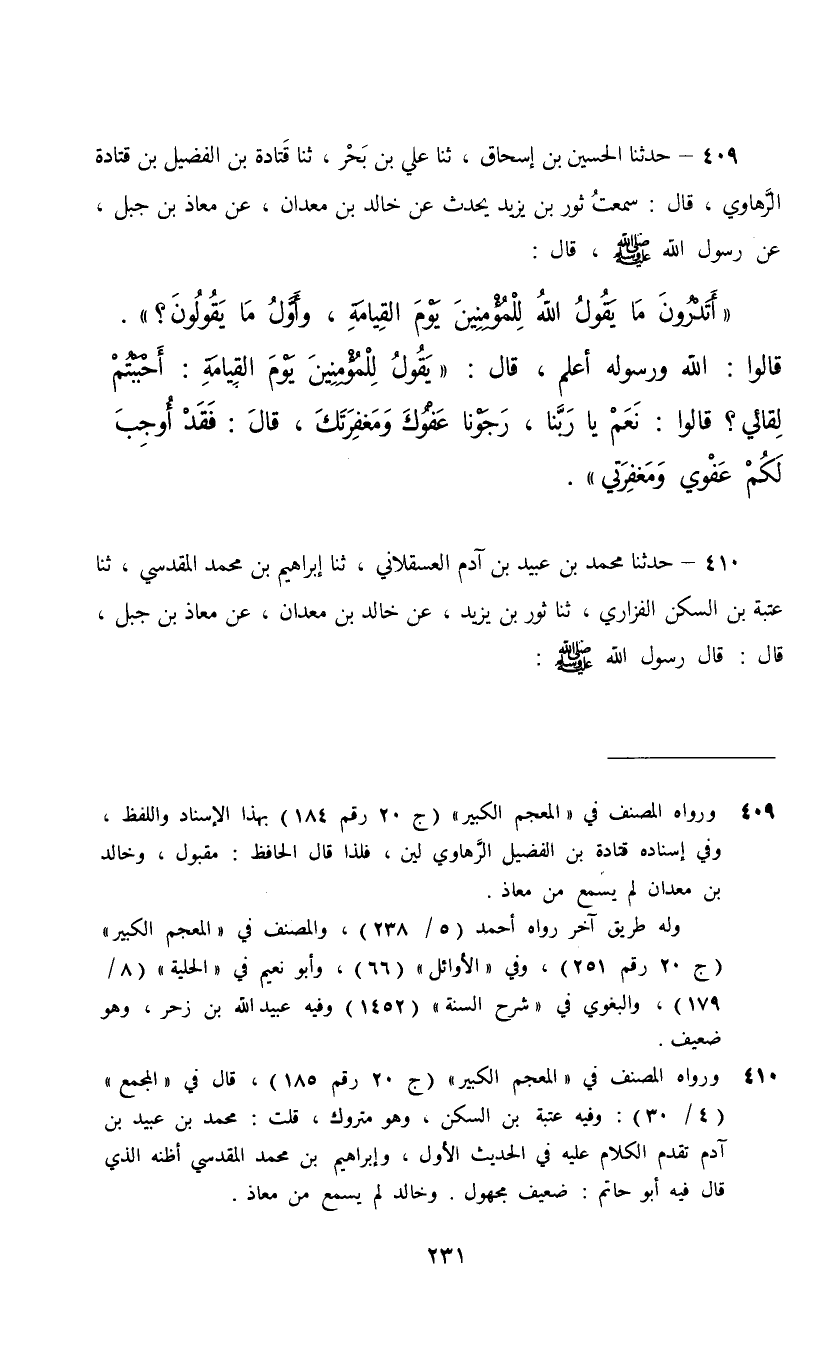 ٤٠٩ – حدثنا الحسين بن إسحاق ، ثنا علي بن بَحْر ، ثنا قَتادة بن الفضيل بن قتادة
الرَّهاوي ، قال : سمعتُ ثور بن يزيد يحدث عن خالد بن معدان ، عن معاذ بن جبل ،
عن رسول الله ﷺ ، قال :
« أَتَدْرُونَ مَا يَقُولُ اللهُ لِلْمُؤْمِنِينَ يَوْمَ القِيامَةِ ، وأَوَّلُ مَا يَقُولُونَ ؟ » .
قالوا : الله ورسوله أعلم ، قال : « يَقُولُ لِلْمُؤْمِنِينَ يَوْمَ القِيامَةِ : أَحْبَبْتُمْ
لِقائي ؟ قالوا : نَعَمْ يا رَبَّنا ، رَجَوْنا عَفْوَكَ وَمَغفِرَتَكَ ، قالَ : فَقَدْ أُوجِبَ
لَكُمْ عَفْوي وَمَغفِرَتي » .
٤١٠ – حدثنا محمد بن عبيد بن آدم العسقلاني ، ثنا إبراهيم بن محمد المقدسي ، ثنا
عتبة بن السكن الفزاري ، ثنا ثور بن يزيد ، عن خالد بن معدان ، عن معاذ بن جبل ،
قال : قال رسول الله ﷺ :
٤٠٩ ورواه المصنف في « المعجم الكبير » ( ج ٢٠ رقم ١٨٤ ) بهذا الإسناد واللفظ ،
وفي إسناده قتادة بن الفضيل الرَّهاوي لين ، فلذا قال الحافظ : مقبول ، وخالد
بن معدان لم يسْمع من معاذ .
وله طريق آخر رواه أحمد ( ٥ / ٢٣٨ ) ، والمصنف في « المعجم الكبير »
( ج ٢٠ رقم ٢٥١ ) ، وفي « الأوائل » ( ٦٦ ) ، وأبو نعيم في « الحلية » ( ٨ /
١٧٩ ) ، والبغوي في « شرح السنة » ( ١٤٥٢ ) وفيه عبيد الله بن زحر ، وهو
ضعيف .
٤١٠ ورواه المصنف في « المعجم الكبير » ( ج ٢٠ رقم ١٨٥ ) ، قال في « المجمع »
( ٤ / ٣٠ ) : وفيه عتبة بن السكن ، وهو متروك ، قلت : محمد بن عبيد بن
آدم تقدم الكلام عليه في الحديث الأول ، وإبراهيم بن محمد المقدسي أظنه الذي
قال فيه أبو حاتم : ضعيف مجهول . وخالد لم يسمع من معاذ .
٢٣١